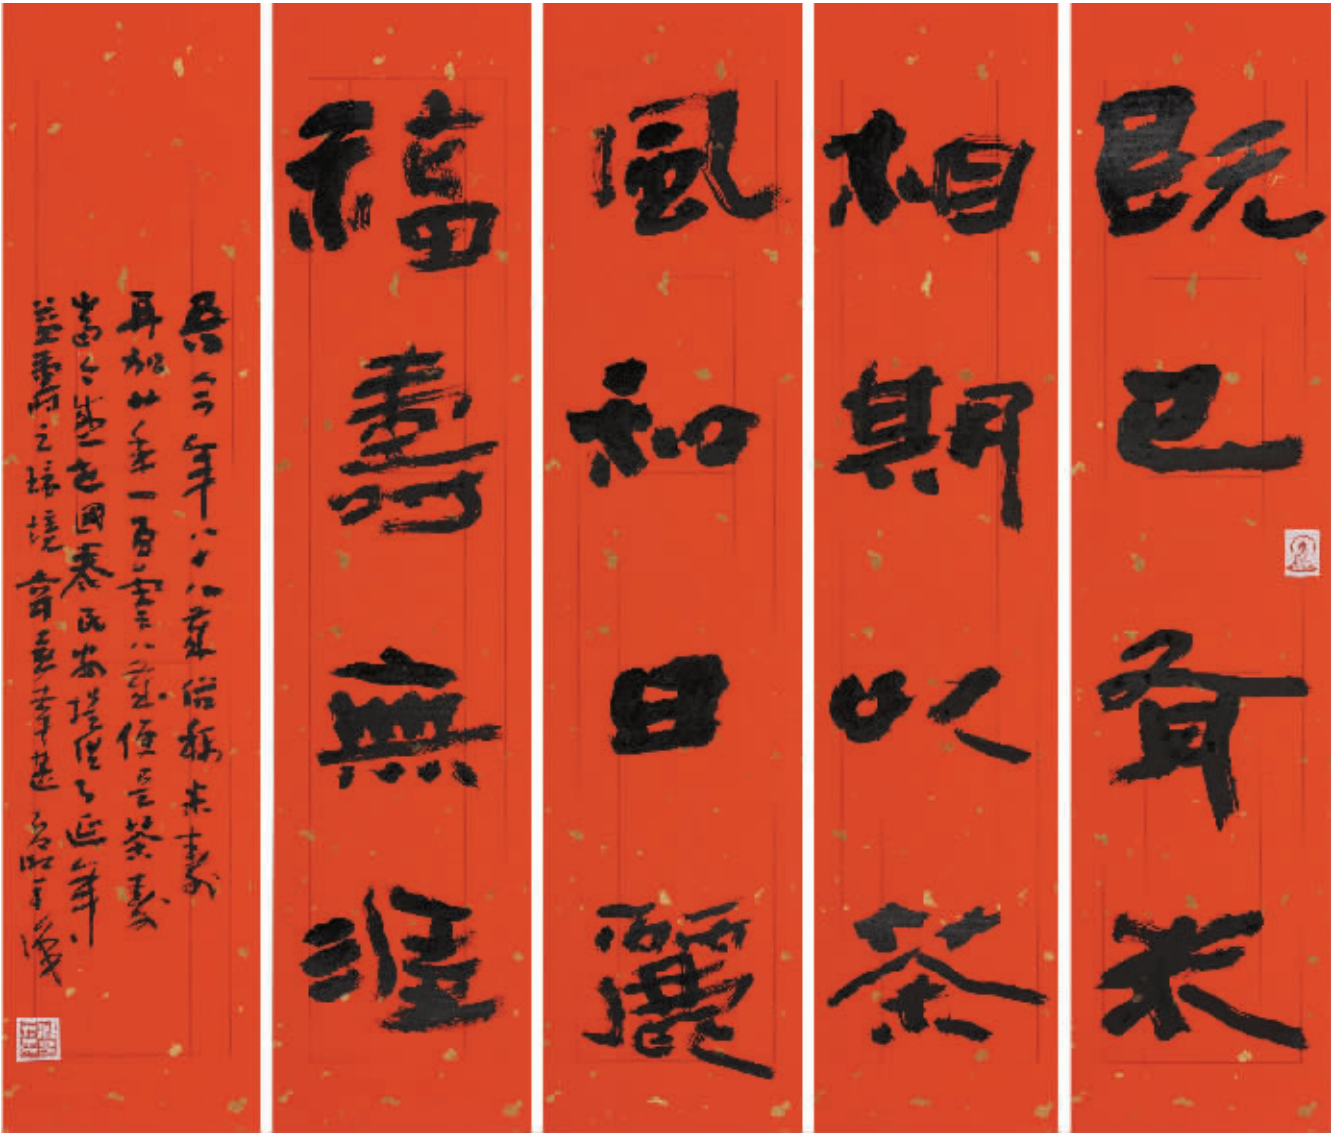 既已有米
相期以茶
風和日麗
福壽無涯
吾今年八十八歲俗稱米壽
再加廿年一百零八歲便是茶壽
當今盛世國泰民安提供了延年
益壽之環境幸甚